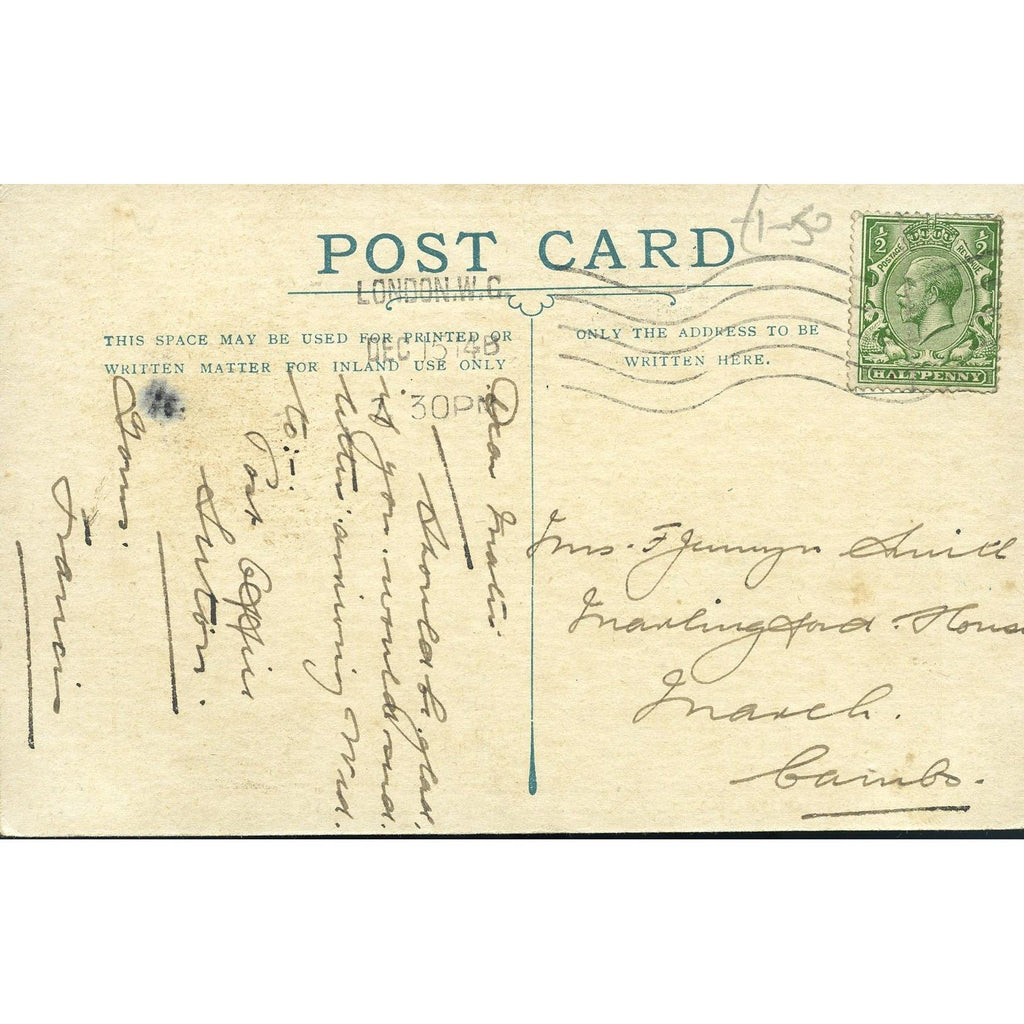 POST CARD
£1-50
½ ½
POSTAGE REVENUE
HALFPENNY
LONDON. W.C.
DEC 15 14
30PM
THIS SPACE MAY BE USED FOR PRINTED OR
WRITTEN MATTER FOR INLAND USE ONLY
ONLY THE ADDRESS TO BE
WRITTEN HERE.
Dear
Should be glad,
if you would send
letter arriving Wed.
to:-
Post Office
Sutton.
Yours.
Francis
Mrs. F Jermyn
Marlingford. House
March.
Cambs.